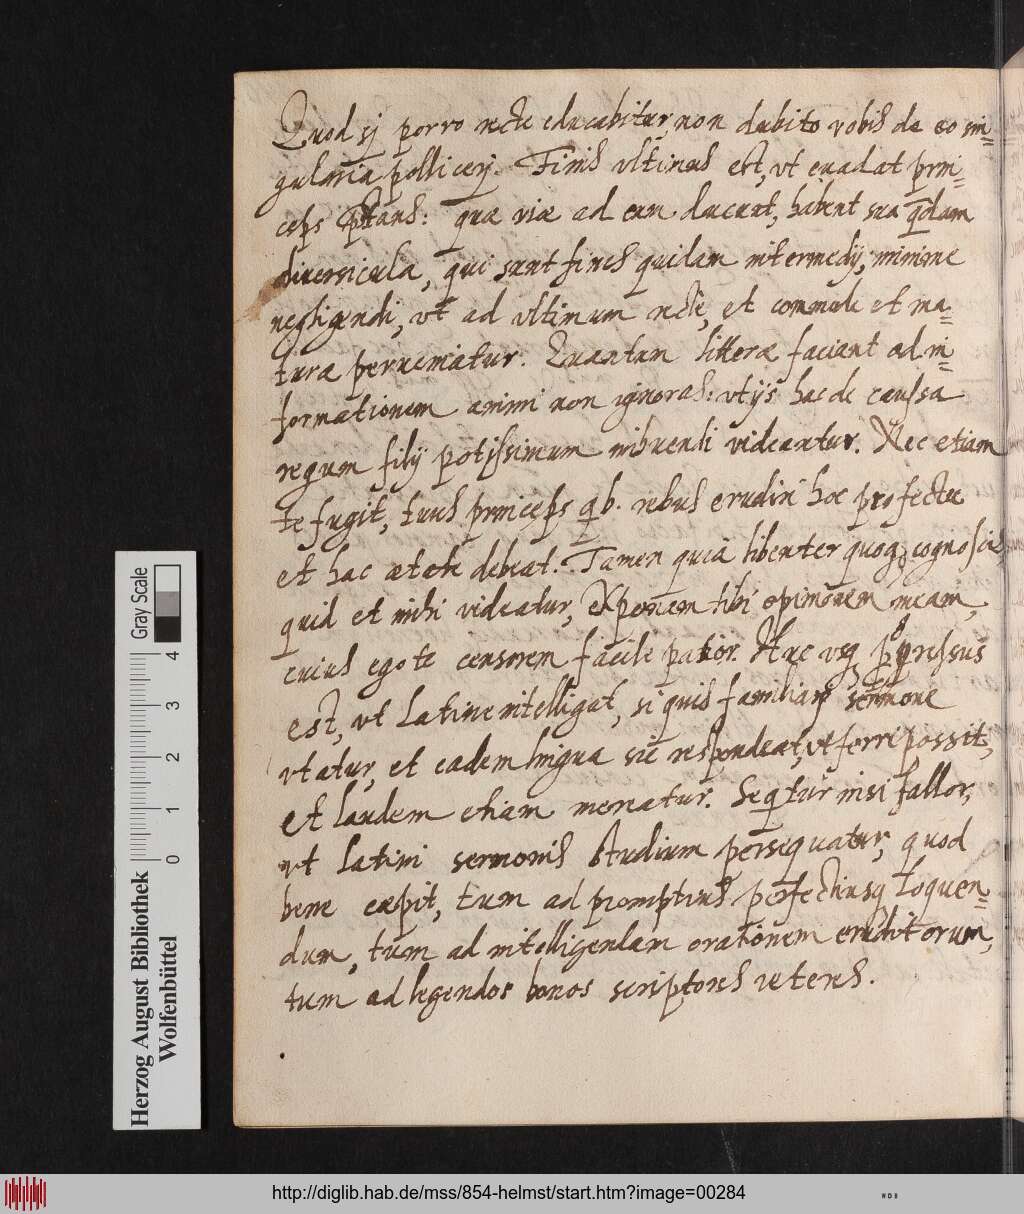 Quod sj porro recte educabitur, non dubito vobis de eo sin=
gularia pollicerj. Finis vltimus est, vt euadat prin=
ceps pstans: quæ viæ ad eum ducunt, habent sua qdam
diuersicula, qui sunt fines quidam intermedij, minime
negligendi, vt ad vltimum recte, et commode et ma=
ture perueniatur. Quantum litteræ faciant ad in=
formationem animi non ignoras: vt ijs hac de caussa
regum filij potissimum imbuendi videantur. Nec etiam
te fugit, tuus princeps qb. rebus erudiri hoc profectu
et hac ætate debeat. Tamen quia libenter quoq cognoscis
quid et mihi videatur, exponam tibi opinionem meam,
cuius ego te censorem facile patior. Huc vsq pgressus
est, vt Latine intelligat, si quis familiari sermone
vtatur, et eadem lingua sic respondeat, vt ferri possit,
et laudem etiam mereatur. Seqitur nisi fallor,
vt Latini sermonis studium persequatur, quod
bene cæpit, tum ad promptius perfectiusq loquen=
dum, tum ad intelligendam orationem eruditorum,
tum ad legendos bonos scriptores veteres.
Herzog August Bibliothek
Wolfenbüttel
Gray Scale
0 1 2 3 4
http://diglib.hab.de/mss/854-helmst/start.htm?image=00284
WDB